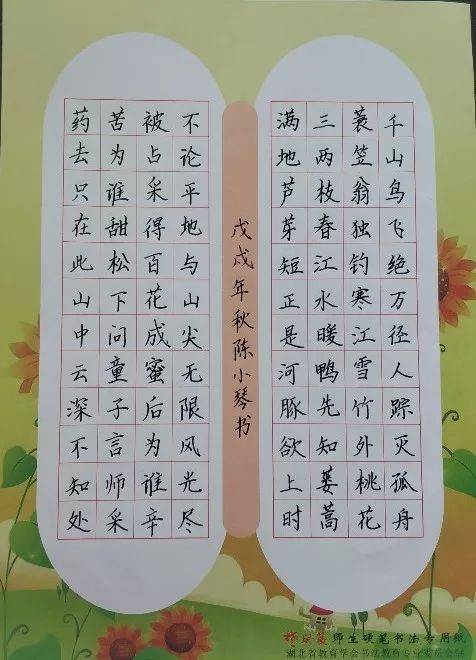 千山鸟飞绝万径人踪灭孤舟
蓑笠翁独钓寒江雪竹外桃花
三两枝春江水暖鸭先知蒌蒿
满地芦芽短正是河豚欲上时
戊戌年秋陈小琴书
不论平地与山尖无限风光尽
被占采得百花成蜜后为谁辛
苦为谁甜松下问童子言师采
药去只在此山中云深不知处
师生硬笔书法专用纸
湖北省教育学会书法教育专业委员会制